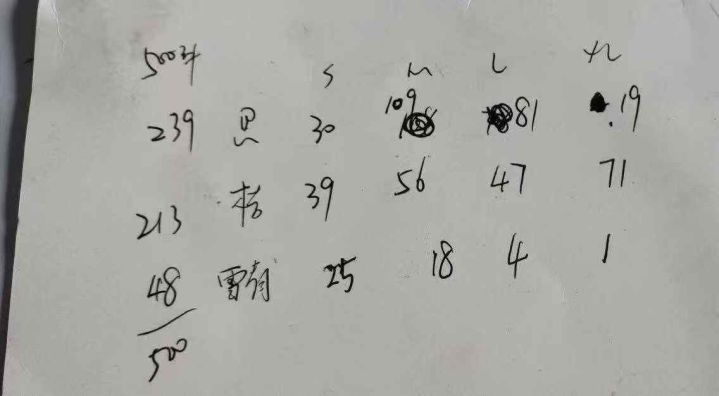 500件 S M L XL
239 黑 30 109 81 19
213 39 56 47 71
48 雪青 25 18 4 1
500